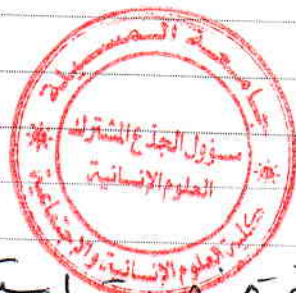 جامعة المسيلة
مسؤول الجذع المشترك
العلوم الإنسانية
كلية العلوم الإنسانية والاجتماعية